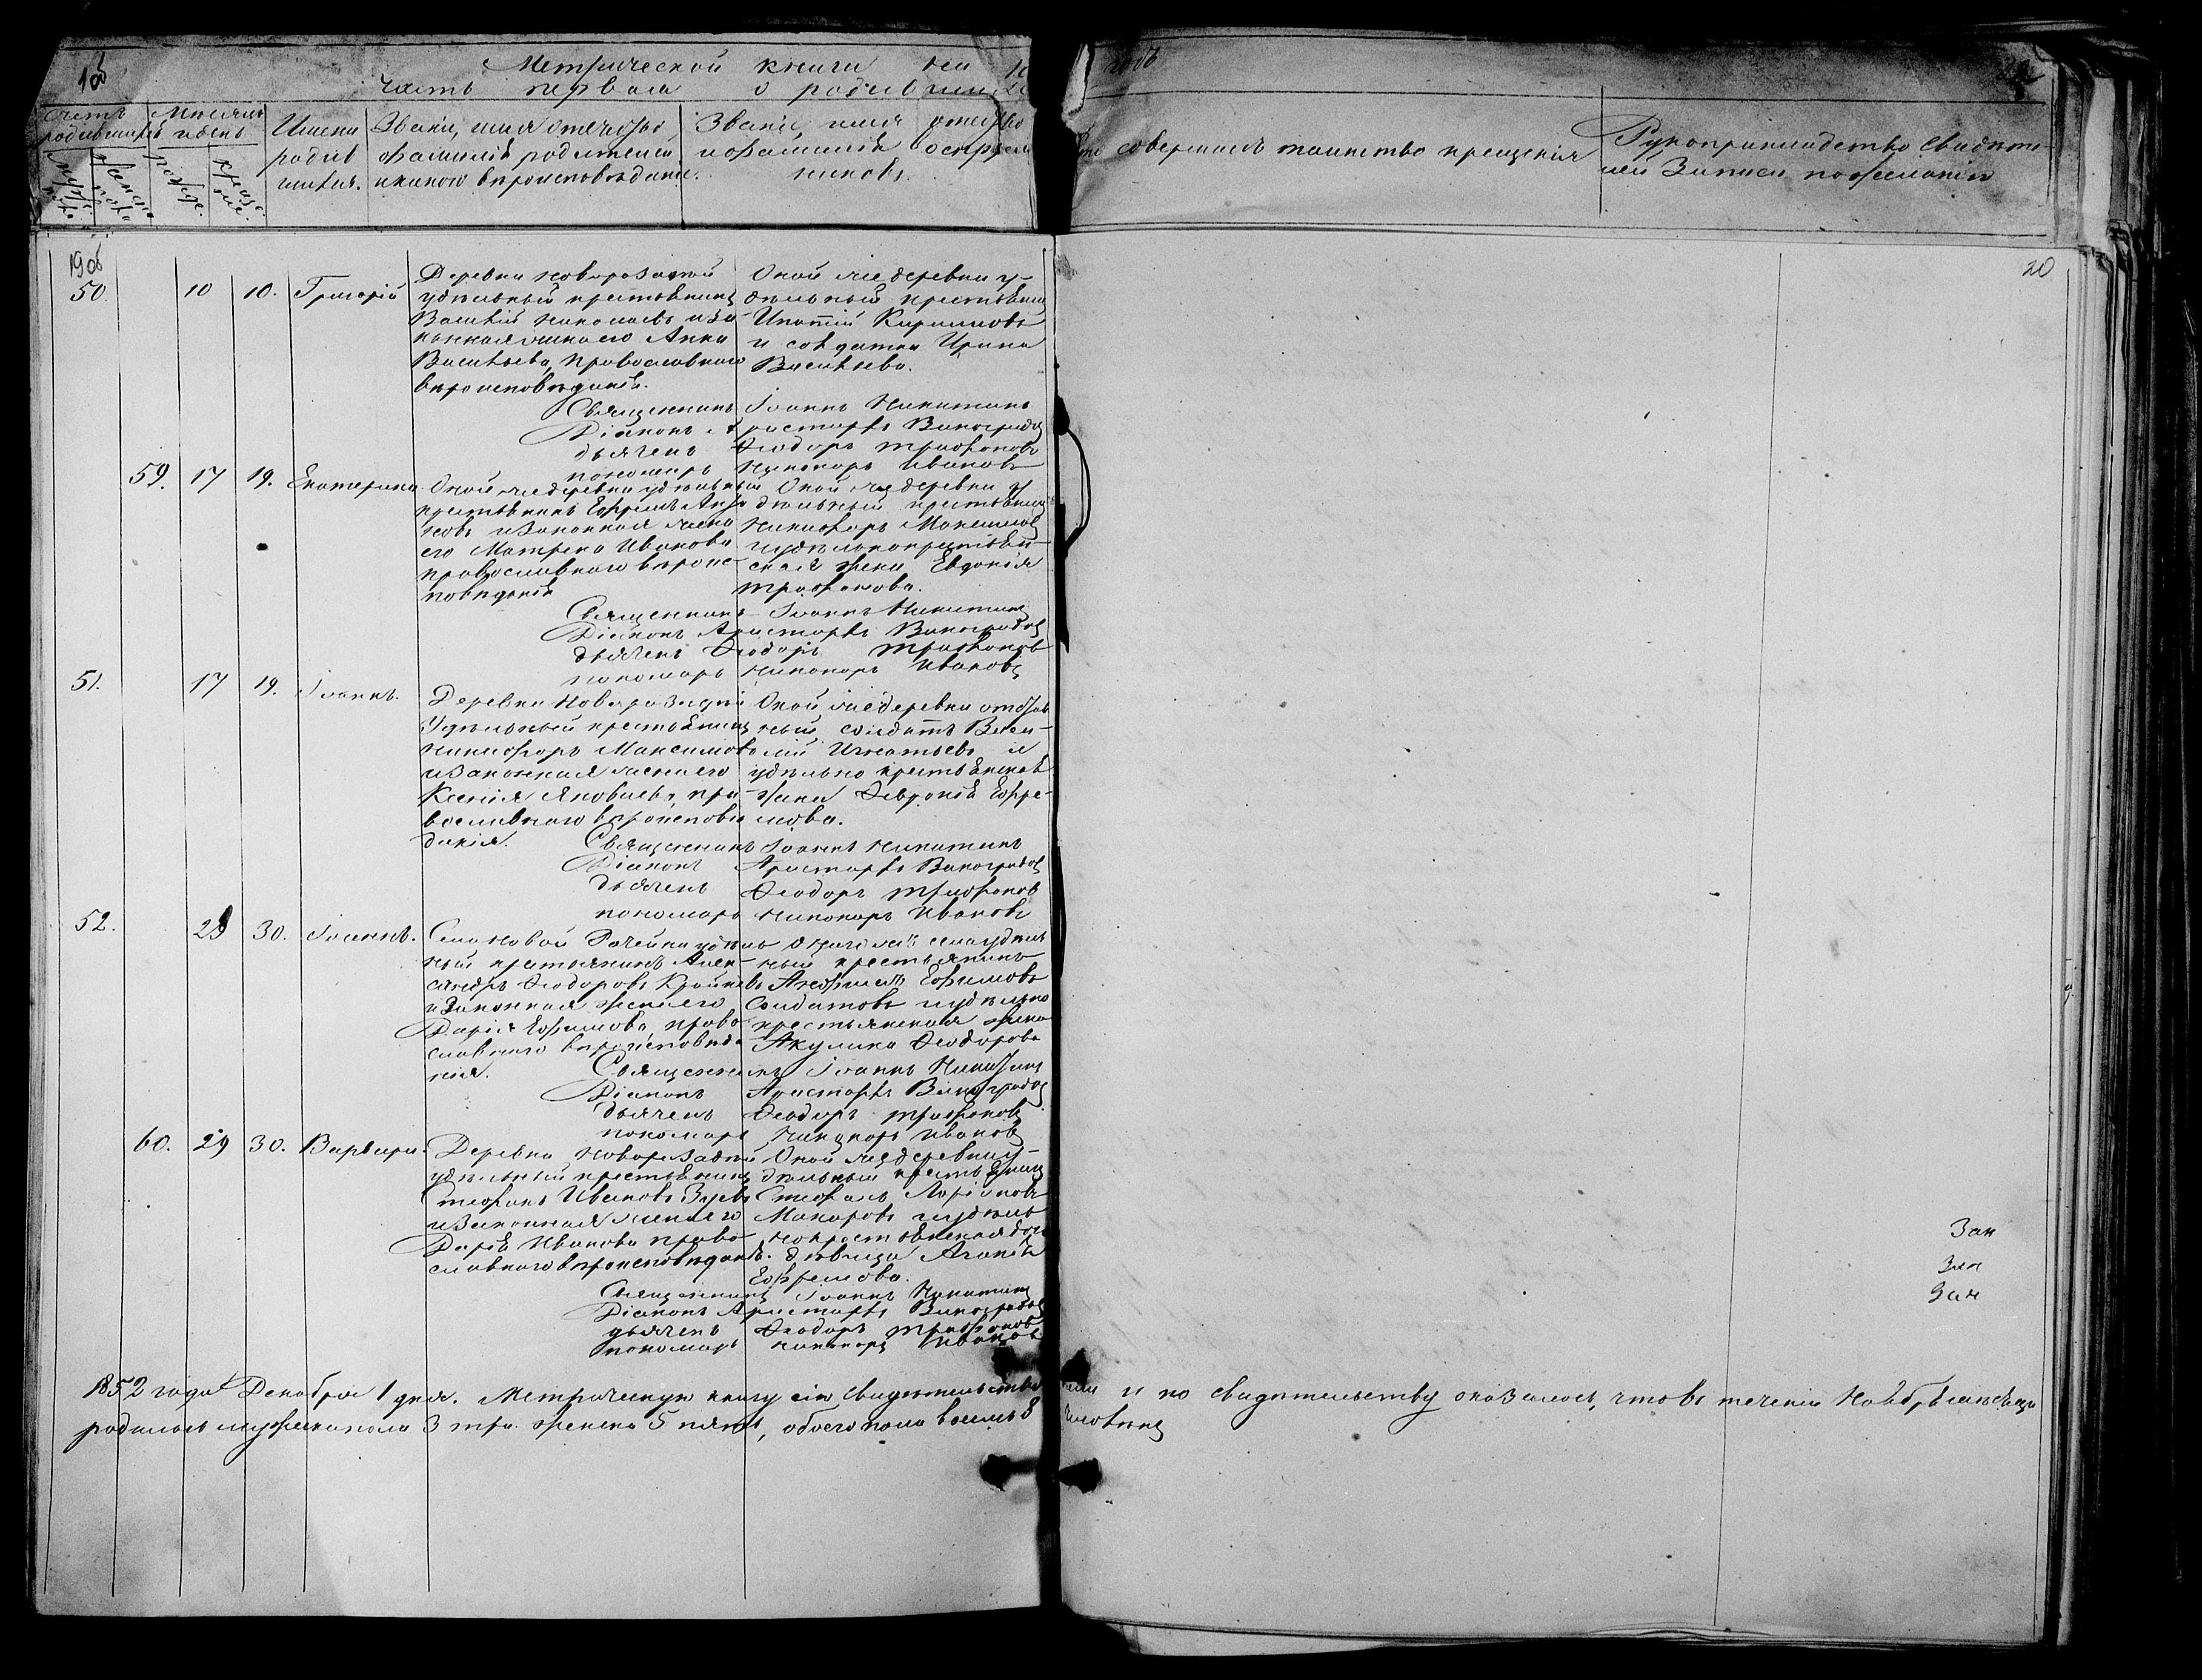 Метрической книги на годъ
часть первая о родившихся
Счетъ родившихся
Мѣсяцъ и день
Имена родившихся.
Званіе, имя отчество фамилія родителей и какого вѣроисповѣданія.
Званіе, имя отчество и фамилія воспріемниковъ.
Кто совершалъ таинство крещенія
Рукоприкладство свидѣтелей записи по желанію
20
50 10 10. Григорій
Деревни Новорозатой
удѣльный крестьянинъ
Василій Николаевъ и за-
конная жена его Анна
Васильева, православнаго
вѣроисповѣданія.
Оной же деревни у-
дѣльный крестьянинъ
Ипатій Кириловъ
и солдатка Ирина
Васильева.
Священникъ Іоаннъ Никитинъ
Діаконъ Аристархъ Виноградов
дьячекъ Ѳеодоръ Трифоновъ
пономарь Никаноръ Ивановъ
59. 17 19. Екатерина
Оной же деревни удѣльный
крестьянинъ Ефремъ
новъ и законная жена
его Матрена Иванова
православнаго вѣроис-
повѣданія
Оной же деревни у
дѣльный крестьянинъ
Никифоръ Максимов
и удѣльнокрестьян-
ская жена Евдокія
Трофимова.
Священникъ Іоаннъ Никитинъ
Діаконъ Аристархъ Виноградов
дьячекъ Ѳеодоръ Трифонов
пономарь Никаноръ Ивановъ
51. 17 19. Іоаннъ.
Деревни Новорозатой
Удѣльный крестьянинъ
Никифоръ Максимовъ
и законная жена его
Ксенія Яковлева, пра-
вославнаго вѣроисповѣ
данія.
Оной же деревни отстав
ный солдатъ Васи-
лій Игнатьевъ и
удѣльно крестьянская
жена Ѳевронія Ефре-
мова.
Священникъ Іоаннъ Никитинъ
Діаконъ Аристархъ Виноградов
дьячекъ Ѳеодоръ Трифонов
пономарь Никаноръ Ивановъ
52. 28 30. Іоаннъ.
Села Новой Рачейки удѣль
ный крестьянинъ Алек-
сандръ Ѳеодоровъ Крайневъ
и законная жена его
Дарія Ефимова, право
славнаго вѣроисповѣда
нія.
Онаго же села удѣль
ный крестьянинъ
Ефимовъ
Солдатовъ и удѣльно
крестьянская жена
Акулина Ѳеодорова
Священникъ Іоаннъ Никитинъ
Діаконъ Аристархъ Виноградов
дьячекъ Ѳеодоръ Трифонов
пономарь Никаноръ Ивановъ
60. 29 30. Варвара
Деревни Новорозатой
удѣльный крестьянинъ
Стефанъ Ивановъ Зуевъ
и законная жена его
Дарья Иванова право-
славнаго вѣроисповѣданія.
Оной же деревни у-
дѣльный крестьянинъ
Стефанъ Ларіоновъ
Макаровъ и удѣль
нокрестьянская дочь
дѣвица Агафія
Ефремова.
Священникъ Іоаннъ Никитинъ
Діаконъ Аристархъ Виноградов
дьячекъ Ѳеодоръ Трифонов
пономарь Никаноръ Ивановъ
Зак
Зак
Зак
1852 года Декабря 1 дня. Метрическую книгу сію свидѣтельствовали и по свидѣтельству оказалось, что въ теченіи Ноября мѣсяца
родилось мужеска пола 3 три. женска 5 пять, обоего пола восемь 8 человѣкъ